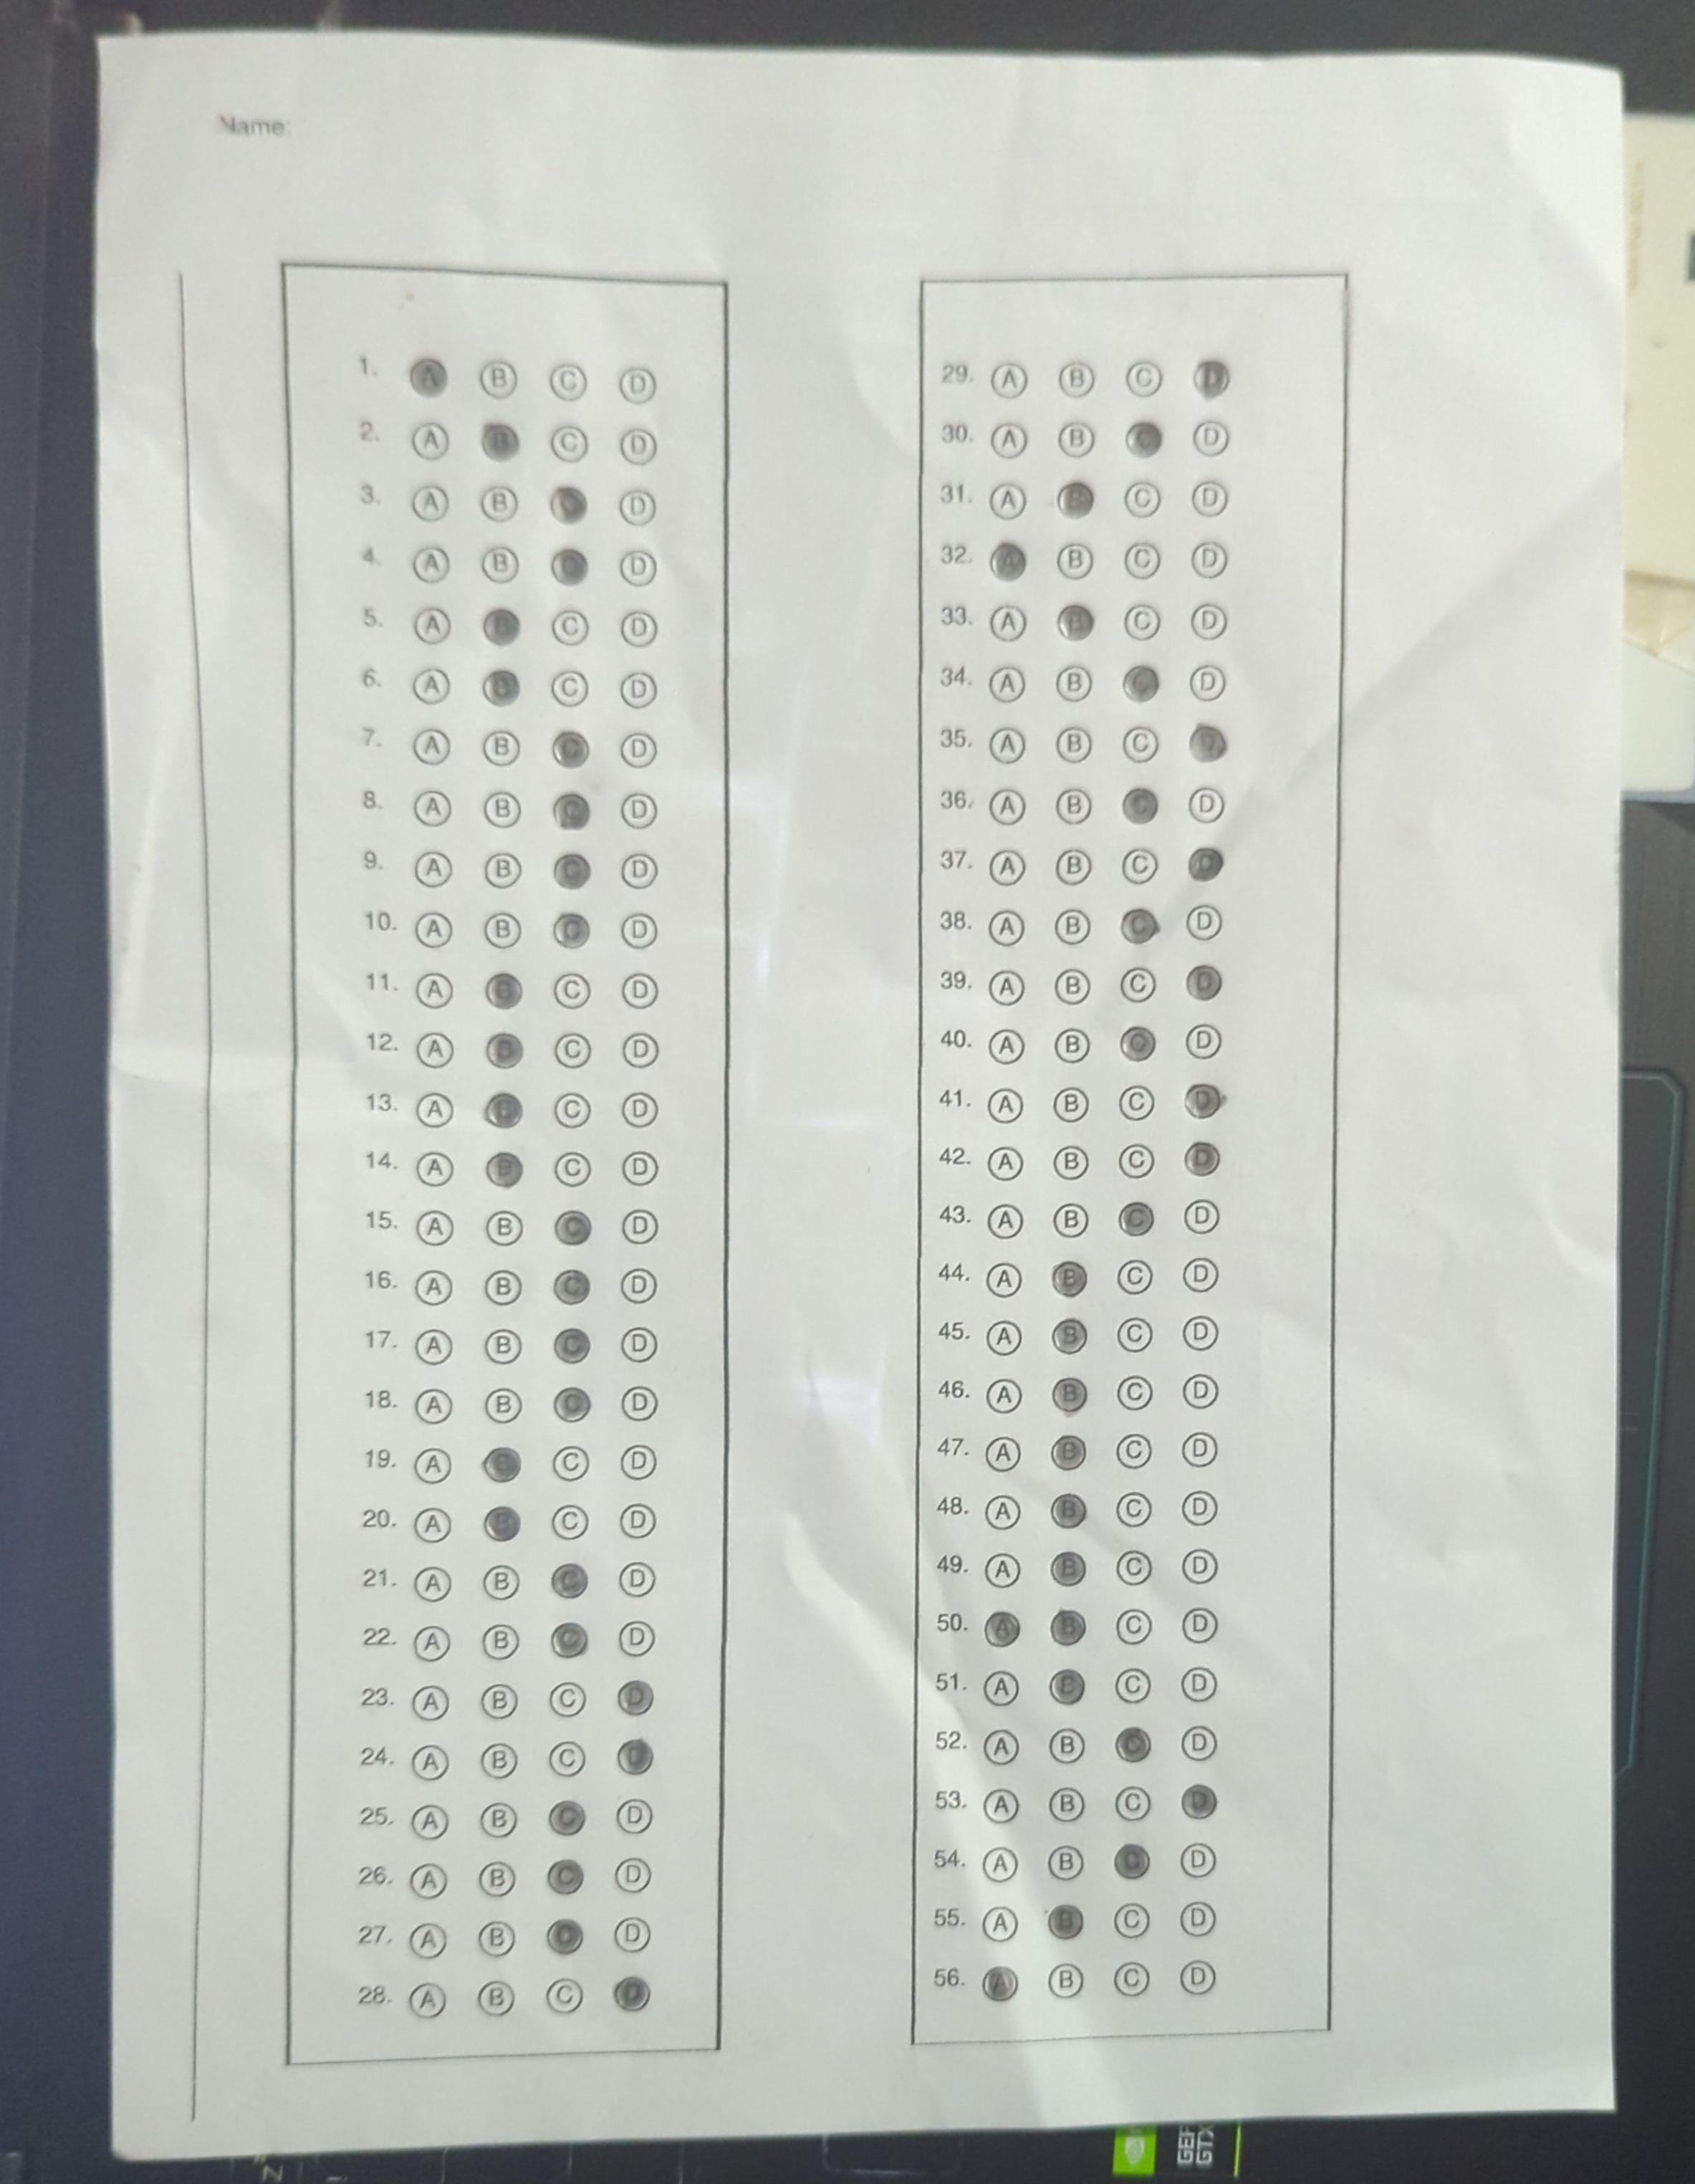 Name:
1. A B C D
2. A B C D
3. A B C D
4. A B C D
5. A B C D
6. A B C D
7. A B C D
8. A B C D
9. A B C D
10. A B C D
11. A B C D
12. A B C D
13. A B C D
14. A B C D
15. A B C D
16. A B C D
17. A B C D
18. A B C D
19. A B C D
20. A B C D
21. A B C D
22. A B C D
23. A B C D
24. A B C D
25. A B C D
26. A B C D
27. A B C D
28. A B C D
29. A B C D
30. A B C D
31. A B C D
32. A B C D
33. A B C D
34. A B C D
35. A B C D
36. A B C D
37. A B C D
38. A B C D
39. A B C D
40. A B C D
41. A B C D
42. A B C D
43. A B C D
44. A B C D
45. A B C D
46. A B C D
47. A B C D
48. A B C D
49. A B C D
50. A B C D
51. A B C D
52. A B C D
53. A B C D
54. A B C D
55. A B C D
56. A B C D
GEF
GTX